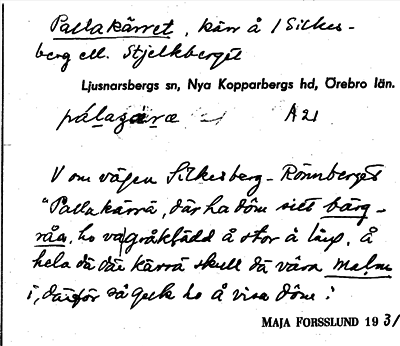 Pallakärret, kärr å / Silkes-
berg ell. Stjelkberget
Ljusnarsbergs sn, Nya Kopparbergs hd, Örebro län.
A 21
V om vägen Silkesberg - Rönnberget
"Pallakärrä, där ha döm sitt bärg-
råa, ho va gråklädd å stor å lång, å
hela dä där kärrä skull dä våra malm
i, därför så geck ho å visa döm!
MAJA FORSSLUND 19 31